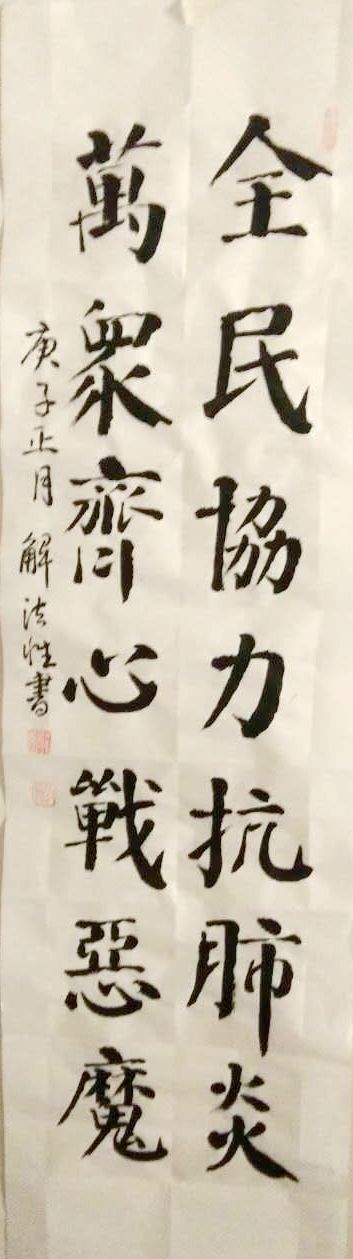 全民協力抗肺炎
萬衆齊心戰惡魔
庚子正月 解法性書